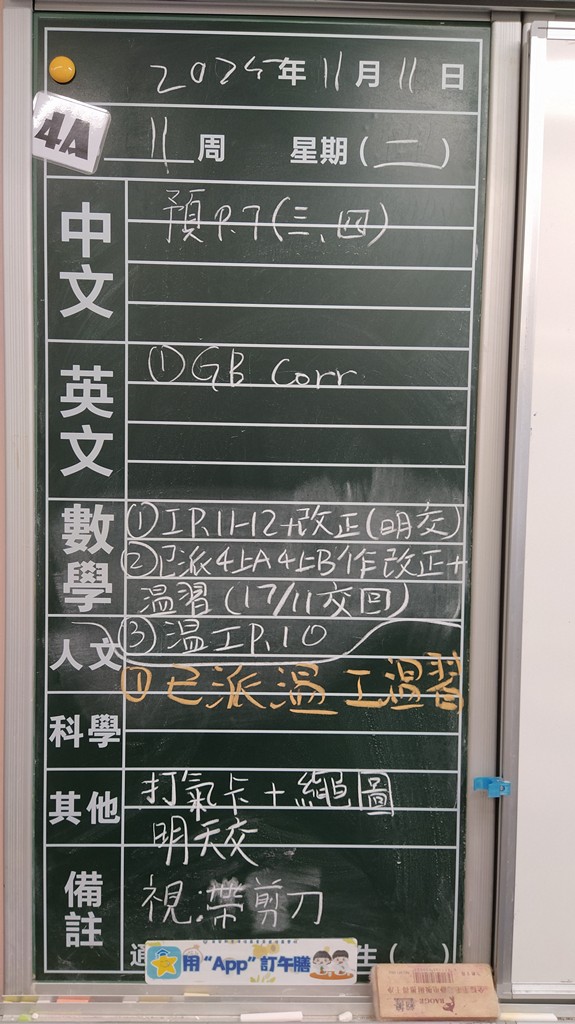 2025年11月11日
4A
11周 星期(二)
中文
預 P.7 (三、四)
英文
① GB Corr.
數學
① 工P.11-12+改正(明交)
② 已派4上A 4上B作改正+
溫習 (17/11交回)
③ 溫工P.10
人文
① 已派溫工溫習
科學
其他
打氣卡+繩圖
明天交
備註
視:帶剪刀
用“App”訂午膳
生(